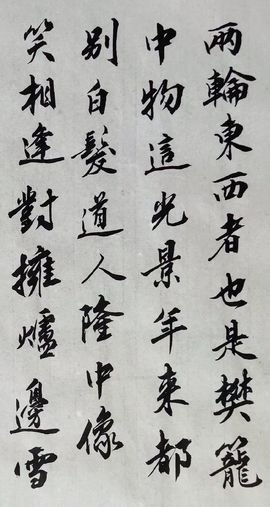 兩輪東西者也是樊籠
中物這光景年来都
別白髮道人隆中像
笑相逢對擁爐邊雪